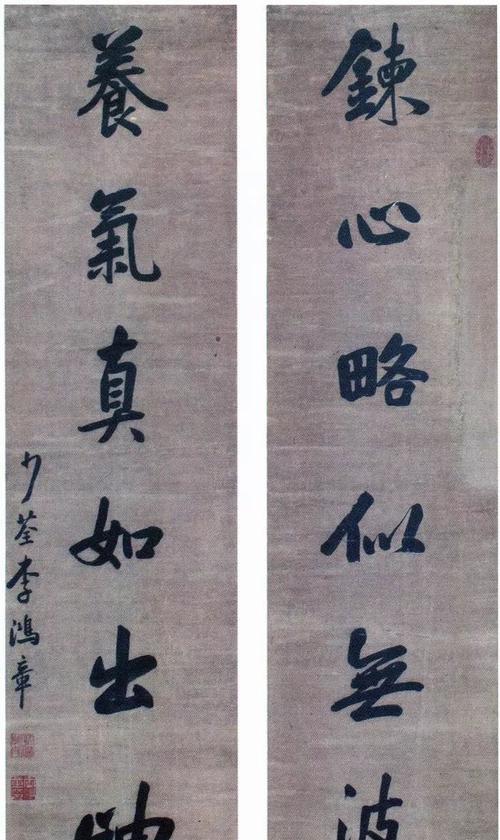 鍊心略似無波
養氣真如出岫
少荃李鴻章